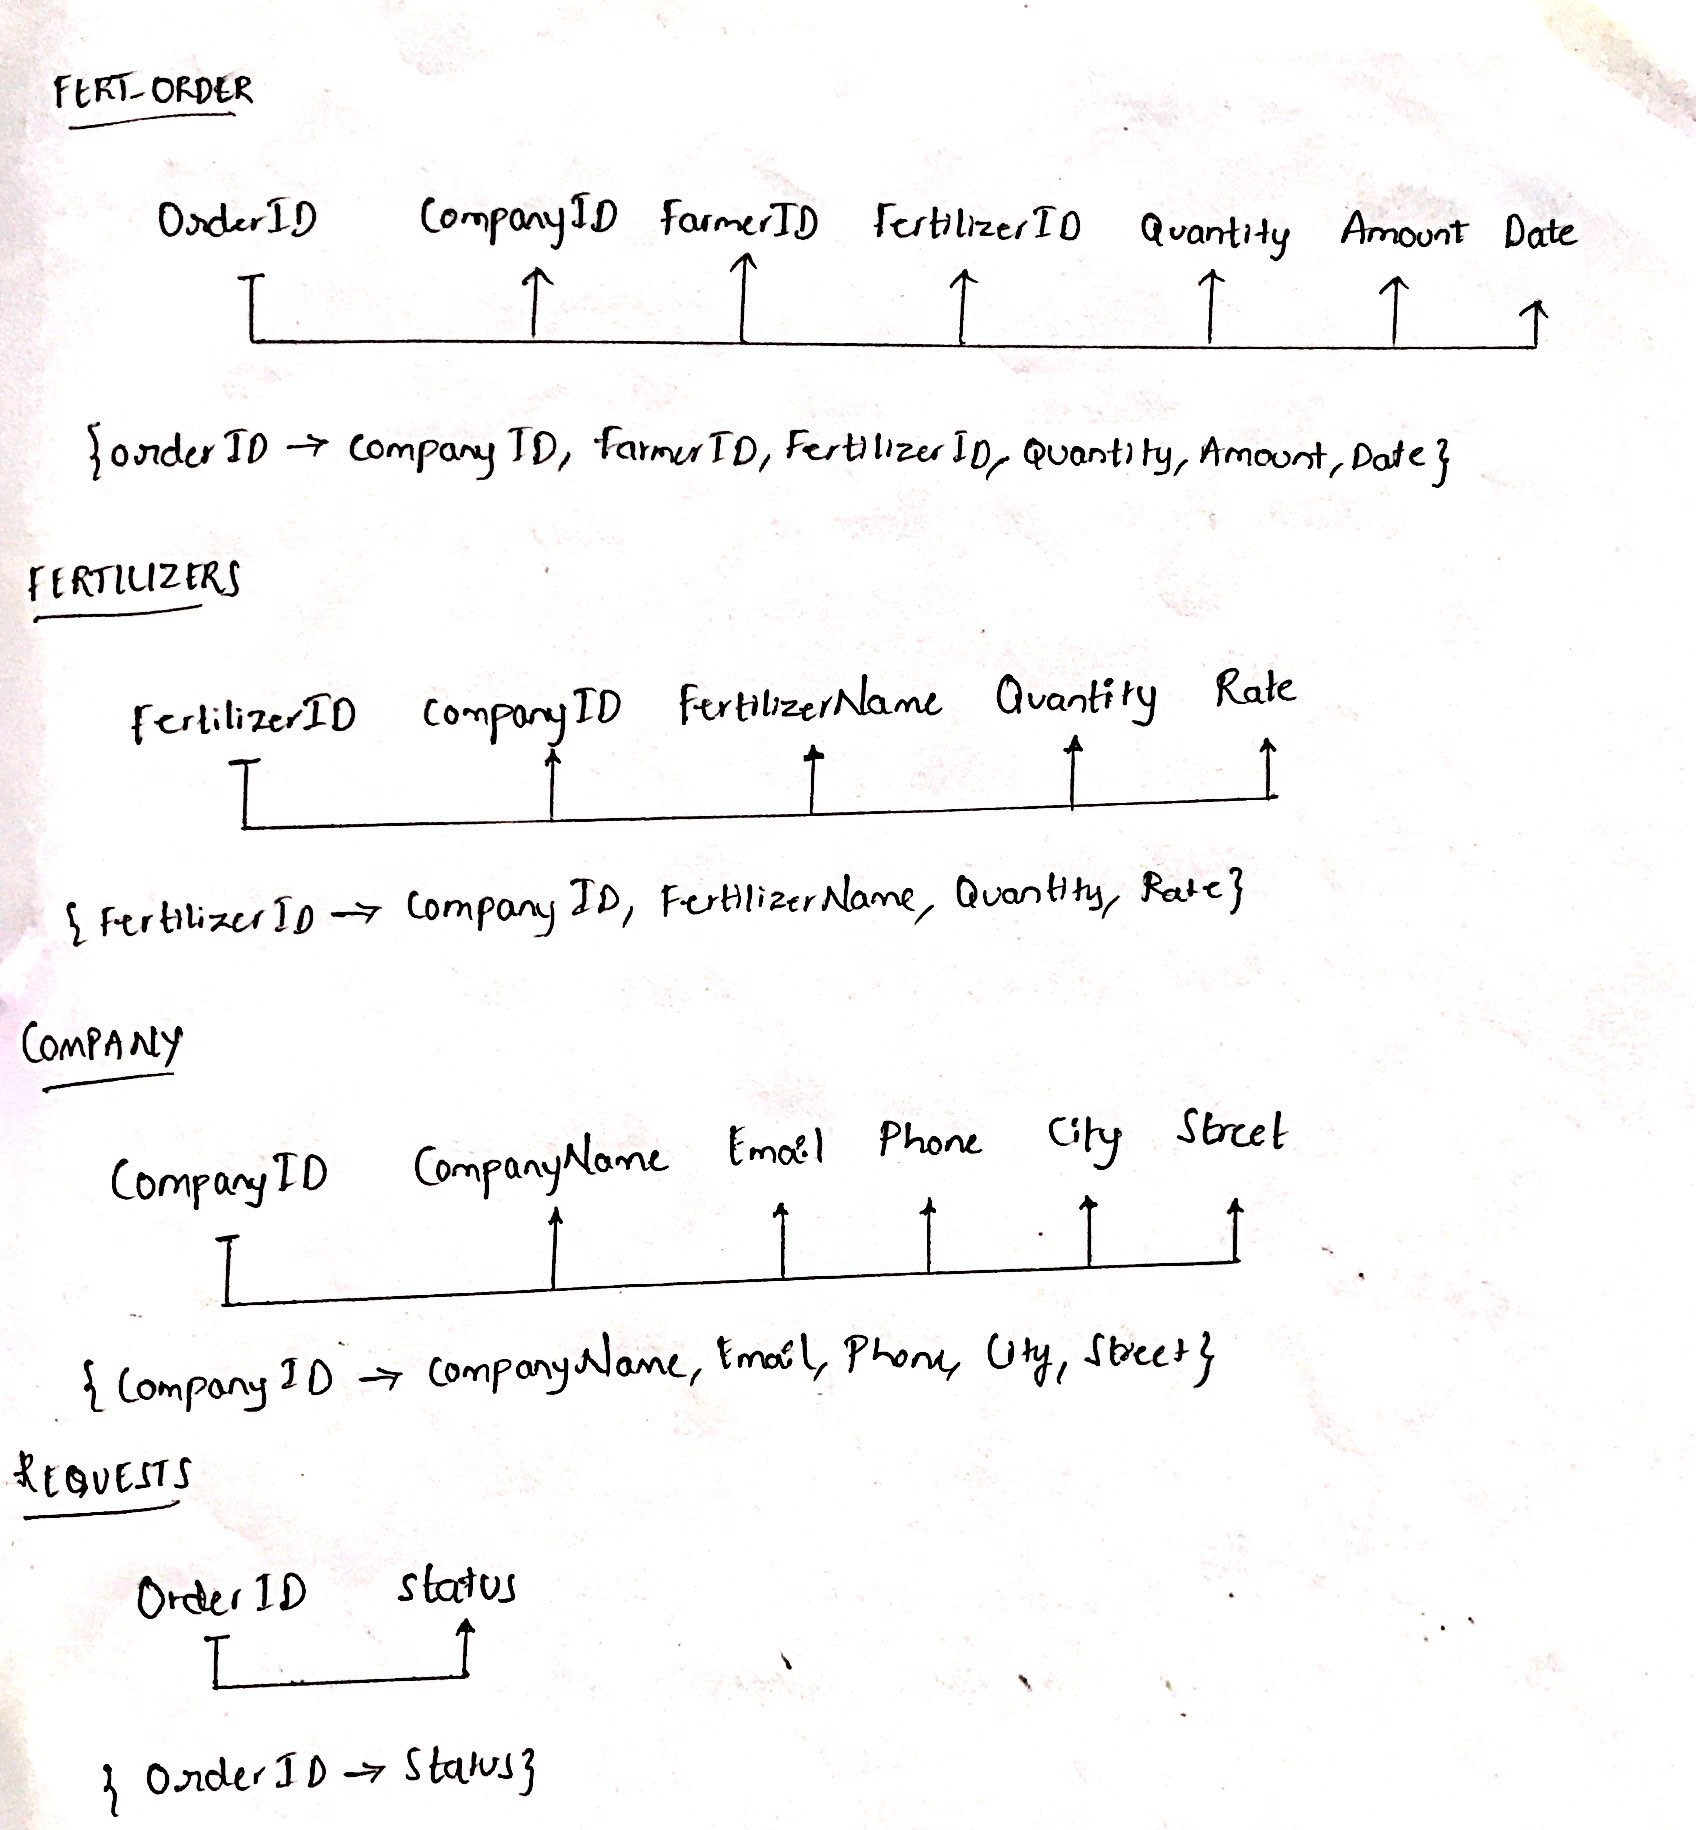 FERT-ORDER
OrderID CompanyID FarmerID FertilizerID Quantity Amount Date
{orderID → CompanyID, FarmerID, FertilizerID, Quantity, Amount, Date}
FERTILIZERS
FertilizerID CompanyID FertilizerName Quantity Rate
{FertilizerID → CompanyID, FertilizerName, Quantity, Rate}
COMPANY
CompanyID CompanyName Email Phone City Street
{CompanyID → CompanyName, Email, Phone, City, Street}
REQUESTS
OrderID Status
{OrderID → Status}